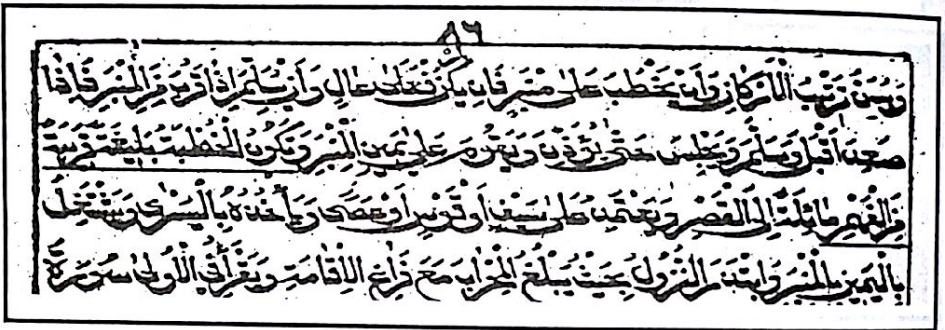 ٨٦
وَيُسَنُّ تَرْتِيْبُ الْاَرْكَانِ وَاَنْ يَخْطُبَ عَلٰى مِنْبَرٍ فَاِنْ لَمْ يَكُنْ فَعَلٰى عَالٍ وَاَنْ يُسَلِّمَ اِذَا قَرُبَ مِنَ الْمِنْبَرِ فَاِذَا
صَعِدَ اَقْبَلَ وَسَلَّمَ وَيَجْلِسُ حَتّٰى يُؤَذَّنَ وَيَقُوْمُ عَلٰى يَمِيْنِ الْمِنْبَرِ وَيَكُوْنُ الْخُطْبَةُ بَلِيْغَةً قَرِيْبَةً
مِنَ الْفَهْمِ مَائِلَةً اِلَى الْقَصْرِ وَيَعْتَمِدُ عَلٰى سَيْفٍ اَوْ قَوْسٍ اَوْ عَصًى وَيَأْخُذُهُ بِالْيُسْرٰى وَيَشْتَغِلُ
بِالْيَمِيْنِ بِالْمِنْبَرِ وَابْتَدَرَ النُّزُوْلَ بِحَيْثُ يَبْلُغُ الْمِحْرَابَ مَعَ فَرَاغِ الْاِقَامَةِ وَيَقْرَأُ فِي الْاُوْلٰى سُوْرَةَ